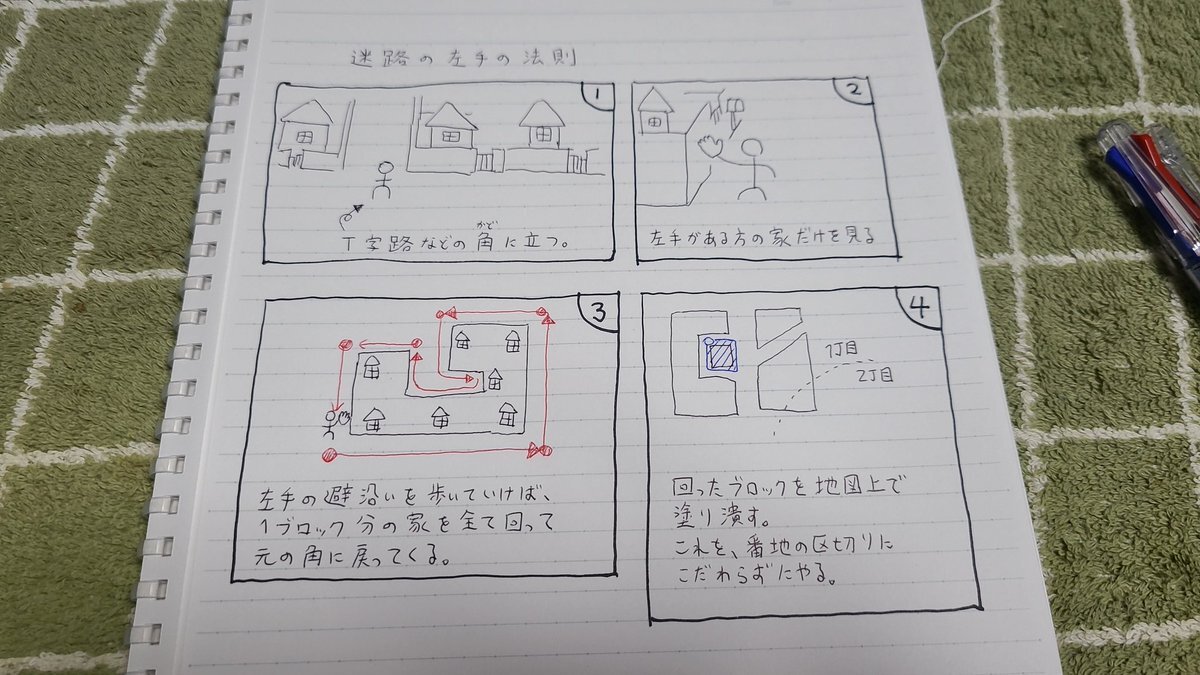 迷路の左手の法則
1
かど
T字路などの角に立つ。
2
左手がある方の家だけを見る
3
左手の避沿いを歩いていけば、
1ブロック分の家を全て回って
元の角に戻ってくる。
4
1丁目
2丁目
回ったブロックを地図上で
塗り潰す。
これを、番地の区切りに
こだわらずにやる。